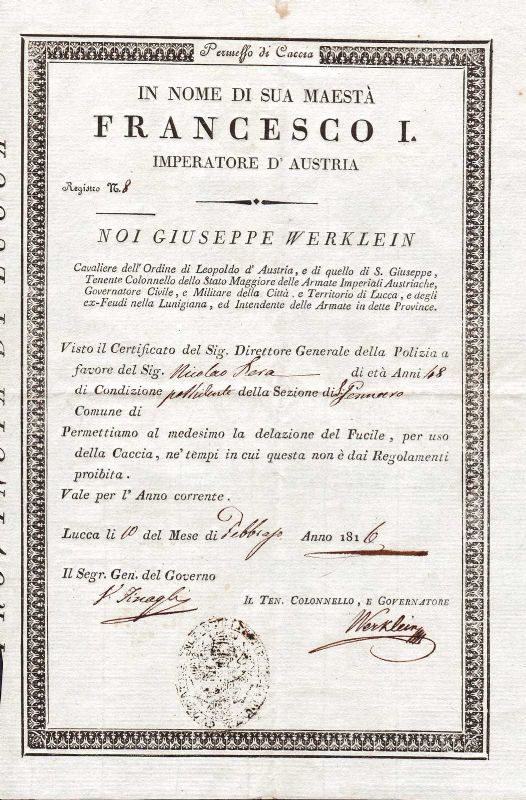 Permesso di Caccia
IN NOME DI SUA MAESTÀ
FRANCESCO I.
IMPERATORE D' AUSTRIA
Registro N. 8
NOI GIUSEPPE WERKLEIN
Cavaliere dell'Ordine di Leopoldo d' Austria, e di quello di S. Giuseppe,
Tenente Colonnello dello Stato Maggiore delle Armate Imperiali Austriache,
Governatore Civile, e Militare della Città, e Territorio di Lucca, e degli
ex-Feudi nella Lunigiana, ed Intendente delle Armate in dette Province.
Visto il Certificato del Sig. Direttore Generale della Polizia a
favore del Sig. Nicolao Pera di età Anni 48
di Condizione possidente della Sezione di S. Gennaro
Comune di
Permettiamo al medesimo la delazione del Fucile, per uso
della Caccia, ne' tempi in cui questa non è dai Regolamenti
proibita.
Vale per l' Anno corrente.
Lucca li 10 del Mese di Febbrajo Anno 1816
Il Segr. Gen. del Governo
IL TEN. COLONNELLO, E GOVERNATORE
Werklein